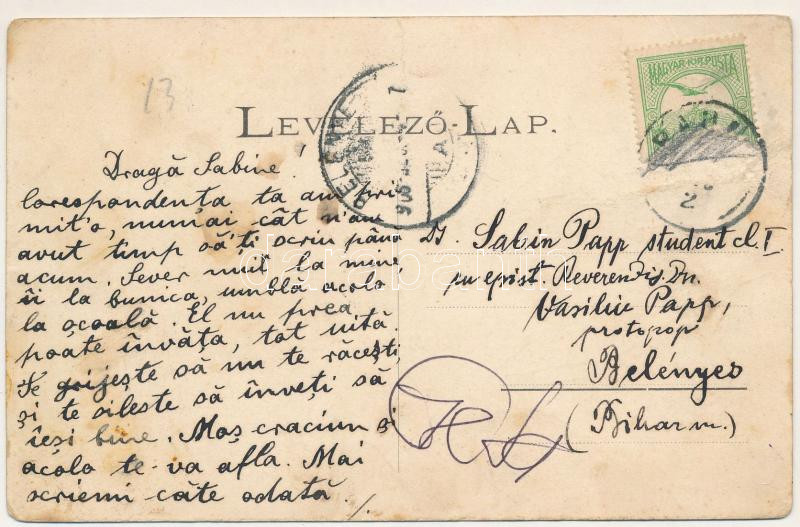 13
LEVELEZŐ-LAP.
MAGYAR KIR. POSTA
BELÉNYE
906
Dragă Sabine!
Corespondența ta am pri
mit'o, numai cât n'am
avut timp să'ți scriu până
acum. Sever nu'i la mine,
îi la bunica, umblă acolo
la școală. El nu prea
poate învăța, tot uită.
Te grijește să nu te răcești
și te silește să înveți să
ieși bine. Moș craciun și
acolo te-va afla. Mai
scriemi câte odată.
Sabin Papp student cl. I.
pu epist Reverendis. Dn.
Vasiliu Papp,
protopop
Belényes
(Bihar m.)